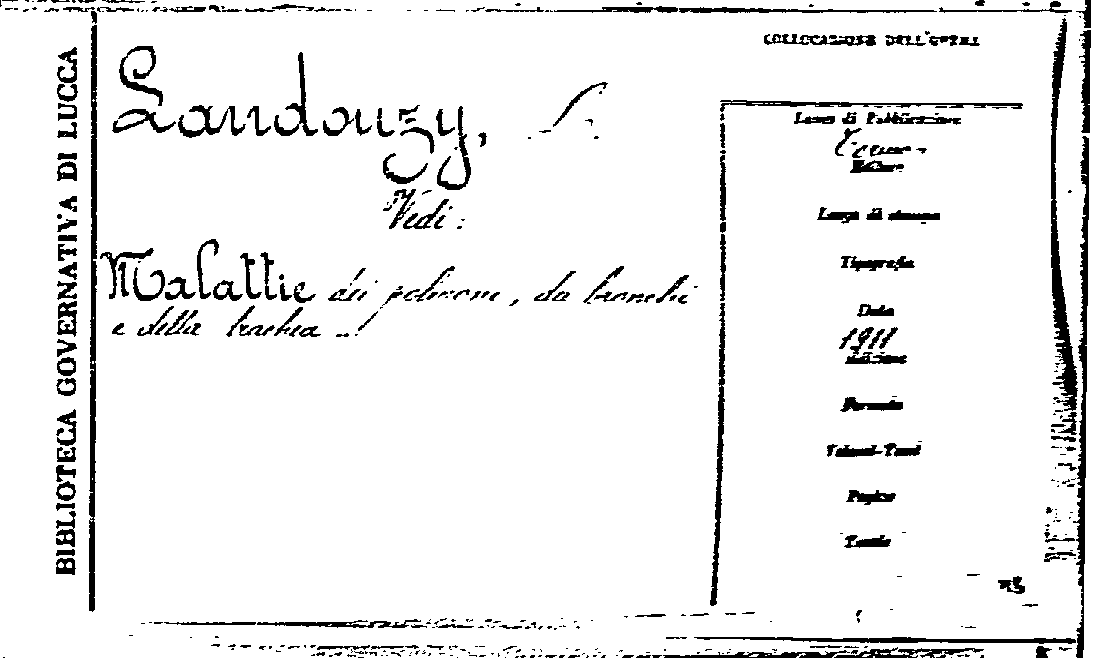 BIBLIOTECA GOVERNATIVA DI LUCCA
COLLOCAZIONE DELL'OPERA
Landouzy,
Vedi:
Malattie dei polmoni, da bronchi
e della trachea
Luogo di Pubblicazione
Editore
Luogo di stampa
Tipografia
Data
1911
Edizione
Formato
Volumi-Tomi
Pagine
Tavole